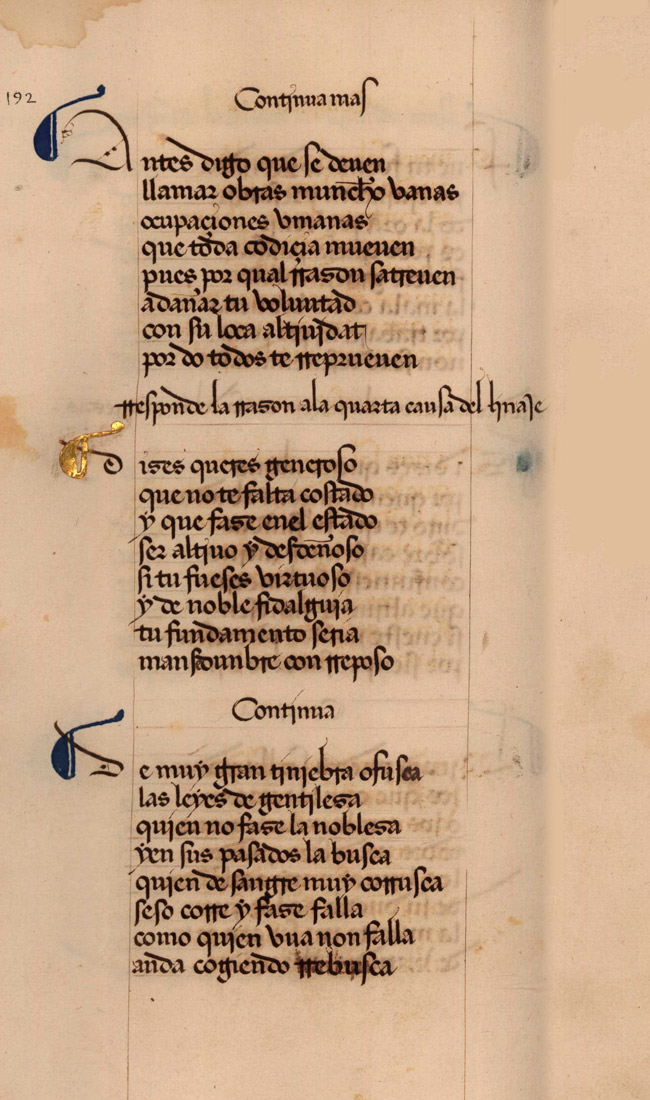 192
Continua mas
Antes digo que se deuen
llamar obras muncho vanas
ocupaçiones vmanas
que toda codiçia mueuen
pues por qual rrason satreuen
adañar tu voluntad
con su loca altiuidat
por do todos te rreprueuen
rresponde la rrason ala quarta causa del linaje
Dises queres generoso
que no te falta costado
y que fase enel estado
ser altiuo y desdeñoso
si tu fueses virtuoso
y de noble fidalguia
tu fundamento seria
mansedunbre con rreposo
Continua
De muy gran tiniebra ofusca
las leyes de gentilesa
quien no fase la noblesa
yen sus pasados la busca
quien de sangre muy corrusca
seso corre y fase falla
como quien vua non falla
anda cogiendo rrebusca